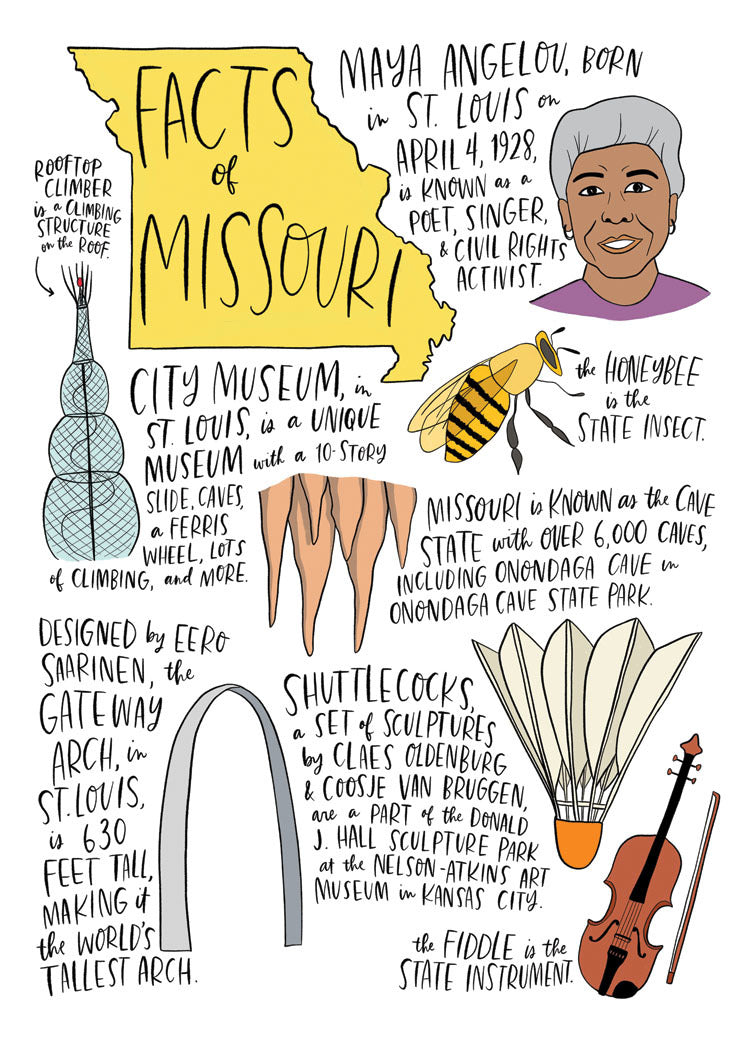 FACTS
of
MISSOURI
MAYA ANGELOU, BORN
in ST. LOUIS on
APRIL 4, 1928,
is KNOWN as a
POET, SINGER,
& CIVIL RIGHTS
ACTIVIST.
ROOFTOP
CLIMBER
is a CLIMBING
STRUCTURE
on the ROOF.
CITY MUSEUM, in
ST. LOUIS, is a UNIQUE
MUSEUM with a 10-STORY
SLIDE, CAVES,
a FERRIS
WHEEL, LOTS
of CLIMBING, and MORE.
the HONEYBEE
is the
STATE INSECT.
MISSOURI is KNOWN as the CAVE
STATE with OVER 6,000 CAVES,
INCLUDING ONONDAGA CAVE in
ONONDAGA CAVE STATE PARK.
DESIGNED by EERO
SAARINEN, the
GATEWAY
ARCH, in
ST. LOUIS,
is 630
FEET TALL,
MAKING it
the WORLD'S
TALLEST ARCH.
SHUTTLECOCKS,
a SET of SCULPTURES
by CLAES OLDENBURG
& COOSJE VAN BRUGGEN,
are a PART of the DONALD
J. HALL SCULPTURE PARK
at the NELSON-ATKINS ART
MUSEUM in KANSAS CITY.
the FIDDLE is the
STATE INSTRUMENT.